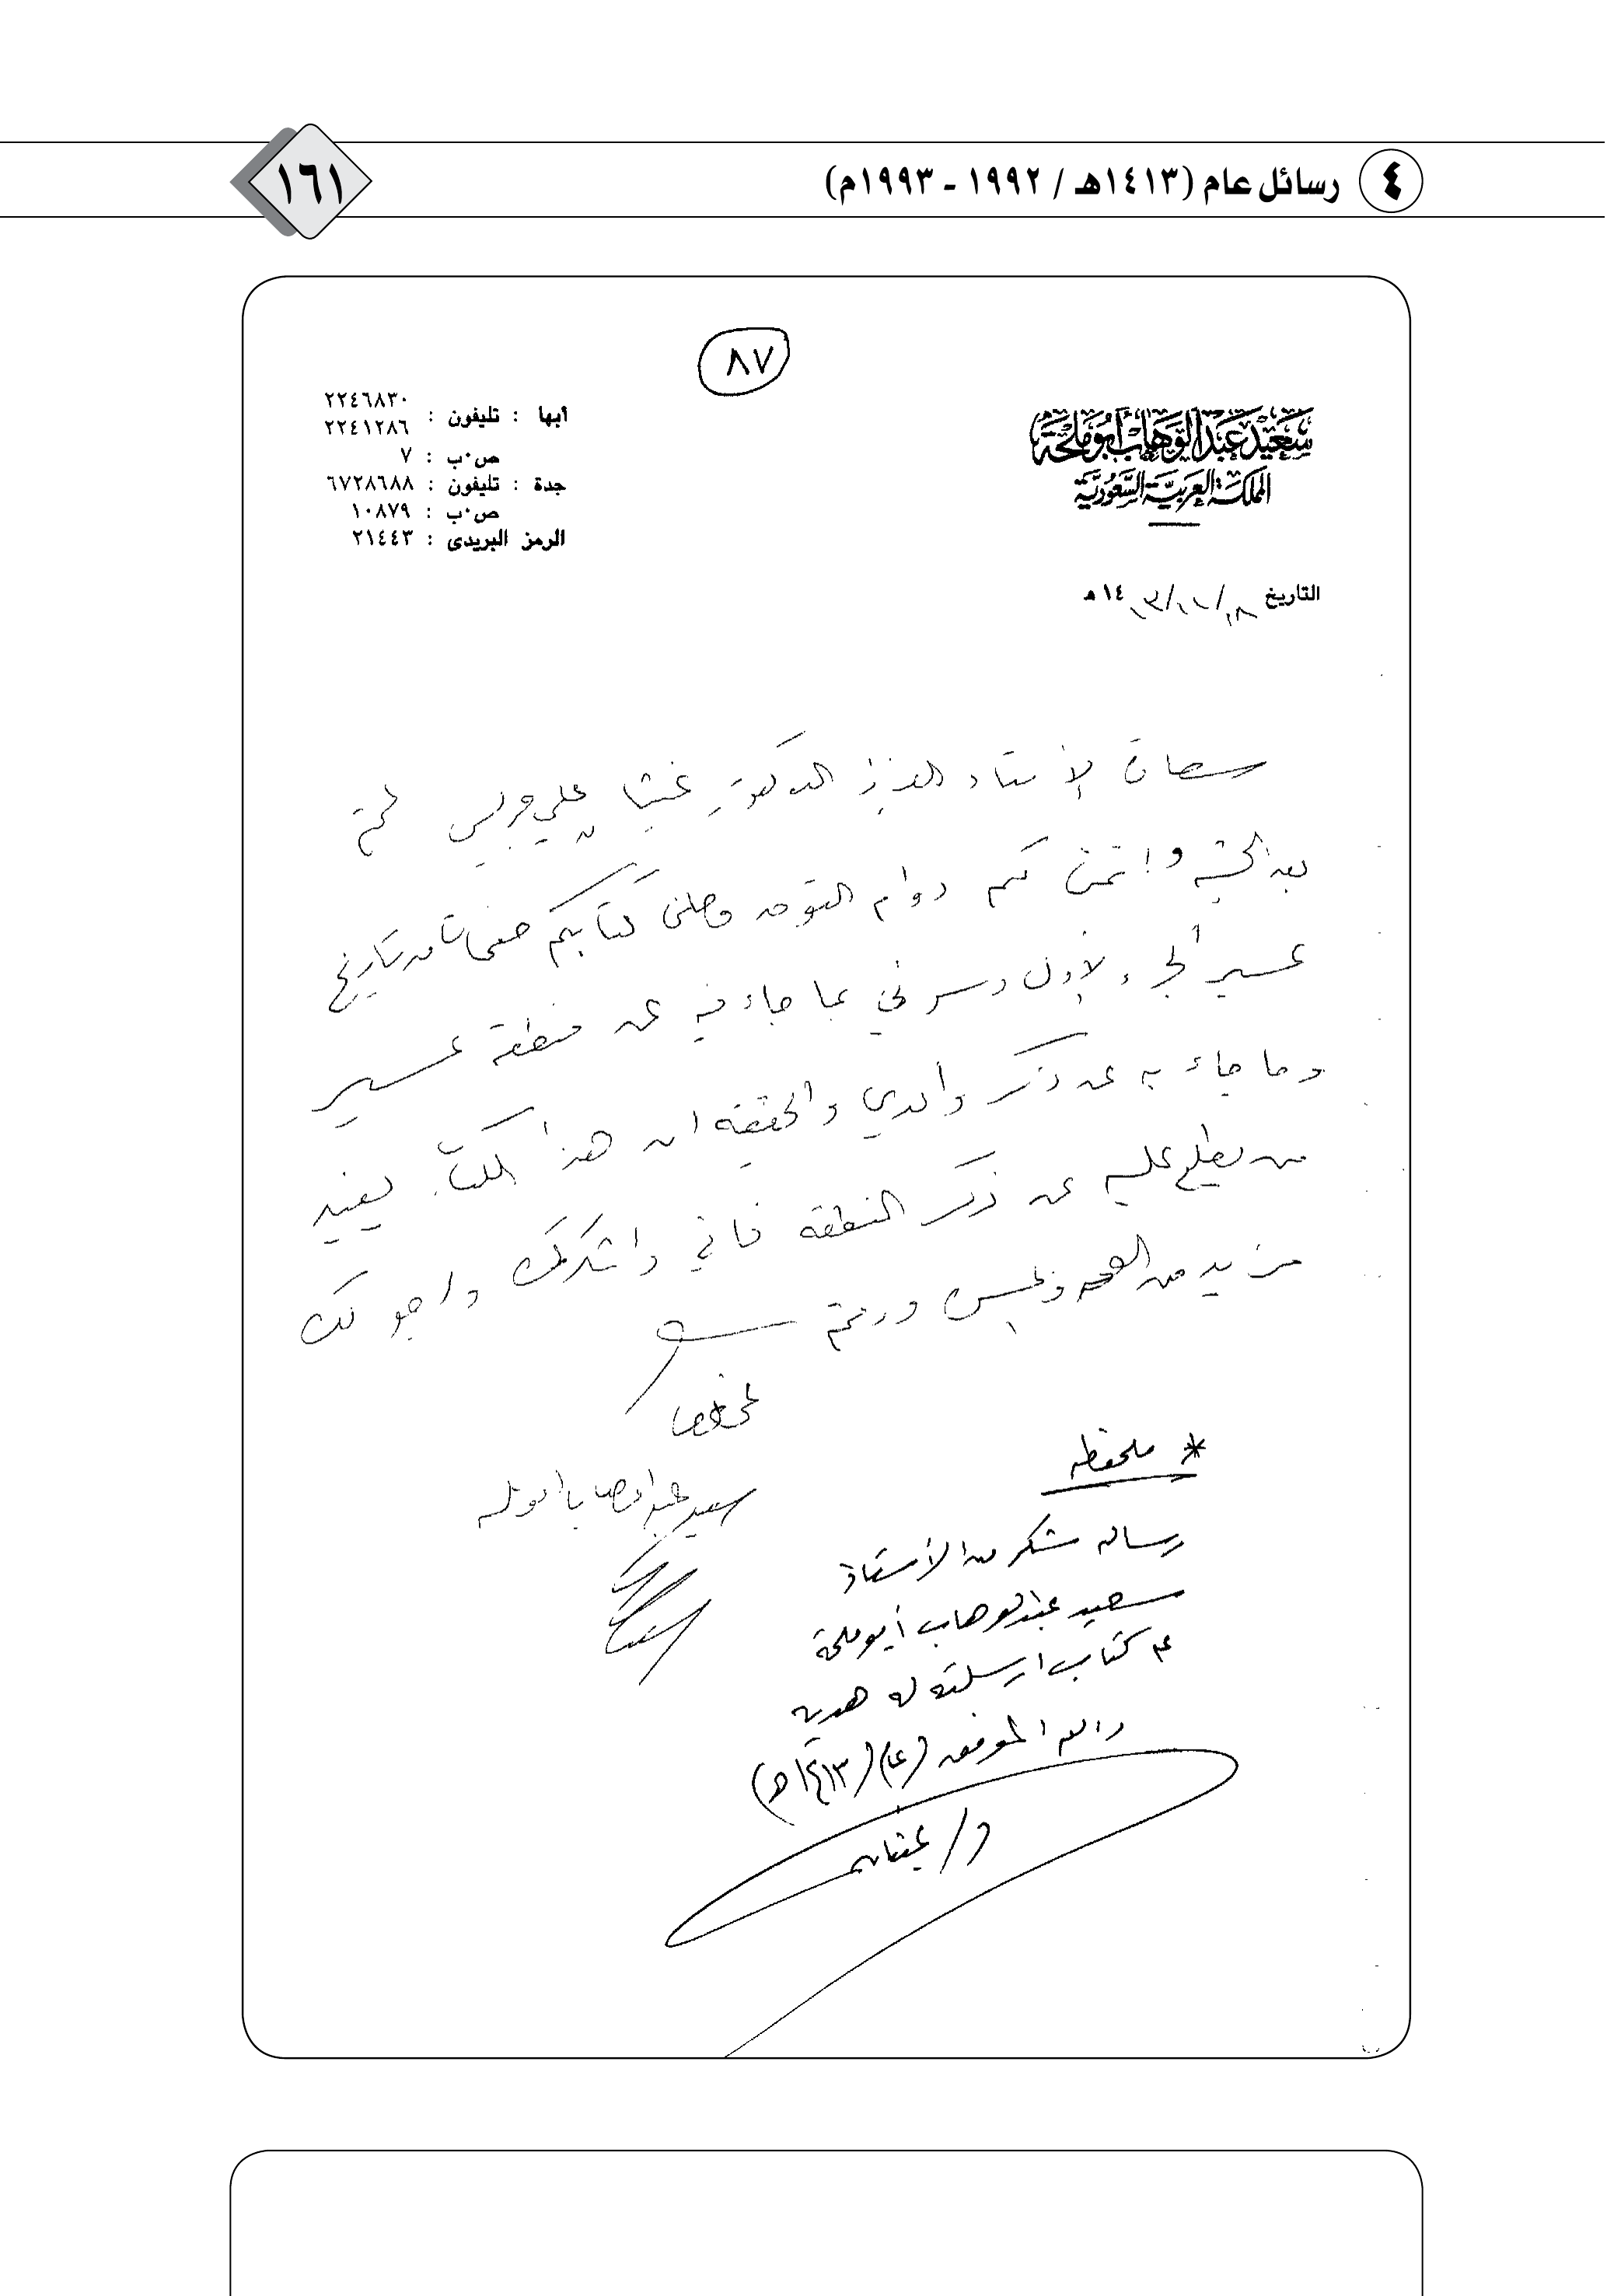 ٤ رسائل عام (١٤١٣هـ / ١٩٩٢ - ١٩٩٣م)
١٦١
٨٧
سعيد عبد الوهاب أبو ملحة
المملكة العربية السعودية
أبها : تليفون : ٢٢٤٦٨٣٠
٢٢٤١٢٨٦
ص.ب : ٧
جدة : تليفون : ٦٧٢٨٦٨٨
ص.ب : ١٠٨٧٩
الرمز البريدى : ٢١٤٤٣
التاريخ ١٤هـ
سعادة الأستاذ العزيز الدكتور غيثان علي جريس
بعد التحية واتمنى لكم دوام التوفيق وصلني كتابكم صفحات من تاريخ
عسير الجزء الأول وسرني بما جاء فيه عن منطقة عسير
وما جاء به عن ذكر والدي والحقيقة ان هذا الكتاب يفيد
من يطلع عليه عن ذكر المنطقة فاني واشكرك وارجو لك
مزيد من الصحة ودمتم
مخلصكم
سعيد عبدالوهاب ابوملحه
* ملحوظه
رساله شكر من الأستاذ
سعيد عبدالوهاب أبو ملحة
عن كتاب ارسلته له هديه
والله الموفق (عام ١٤١٣هـ)
د/ غيثان